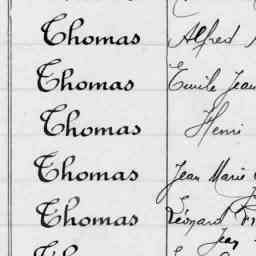 Thomas Alfred
Thomas Emile Jean
Thomas Henri
Thomas Jean Marie
Thomas Léonard
Jean